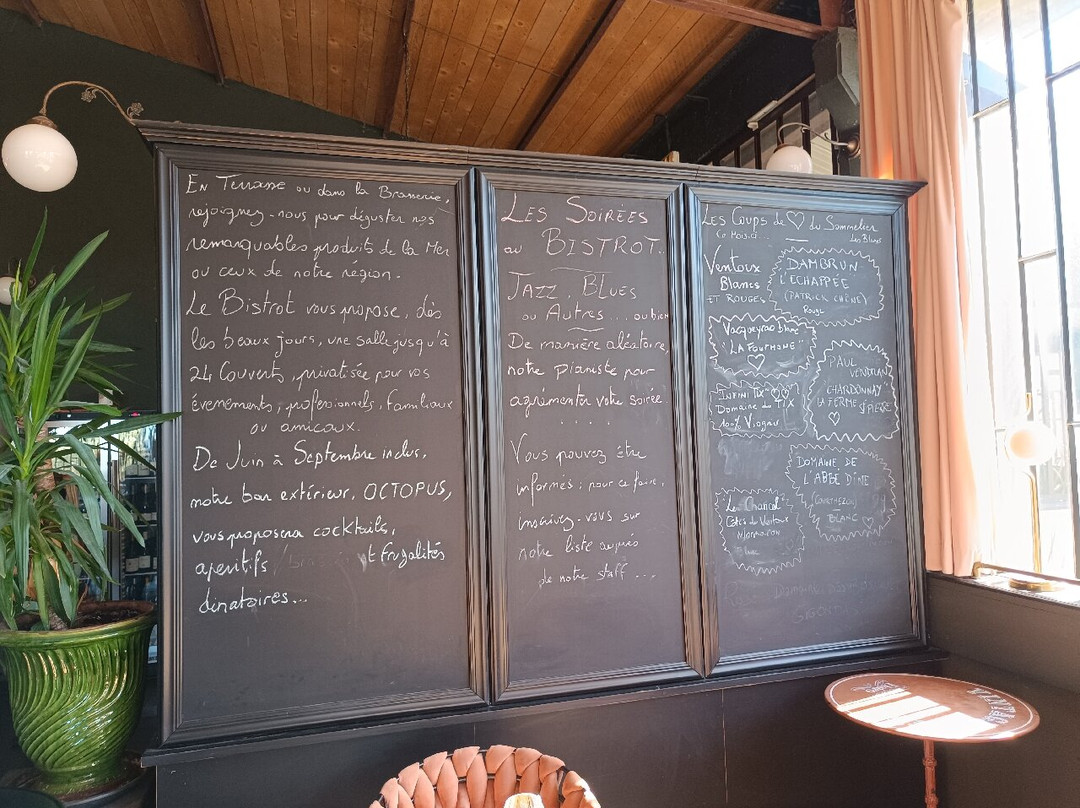 En Terrasse ou dans la Brasserie,
rejoignez-nous pour déguster nos
remarquables produits de la Mer
ou ceux de notre région.
Le Bistrot vous propose, dès
les beaux jours, une salle jusqu'à
24 Couverts, privatisée pour vos
évenements, professionnels, familiaux
ou amicaux.
De Juin à Septembre inclus,
notre bar extérieur, OCTOPUS,
vous proposera cocktails,
aperitifs et frugalités
dinatoires...
LES SOIRÉES
au BISTROT..
JAZZ, BLUES
ou Autres... ou bien
De manière aléatoire,
notre pianiste pour
agrémenter votre soirée
....
Vous pouvez être
informés ; pour ce faire,
inscrivez-vous sur
notre liste auprès
de notre staff ...
LES Coups de ♡ du Sommelier
Ce Mois.ci...
Ventoux
Blancs
ET ROUGES
DAMBRUN
L'ECHAPPÉE
(PATRICK CHÊNE)
Rouge
Vacqueyras blanc
"LA FOURMONE"
♡
PAUL
CHARDONNAY
LA FERME ST PIERRE
♡
INFINI TIX ♡♡
Domaine du TIX
100% Viognier
DOMAINE DE
L'ABBE DÎNE
BLANC ♡
Côtes du Ventoux